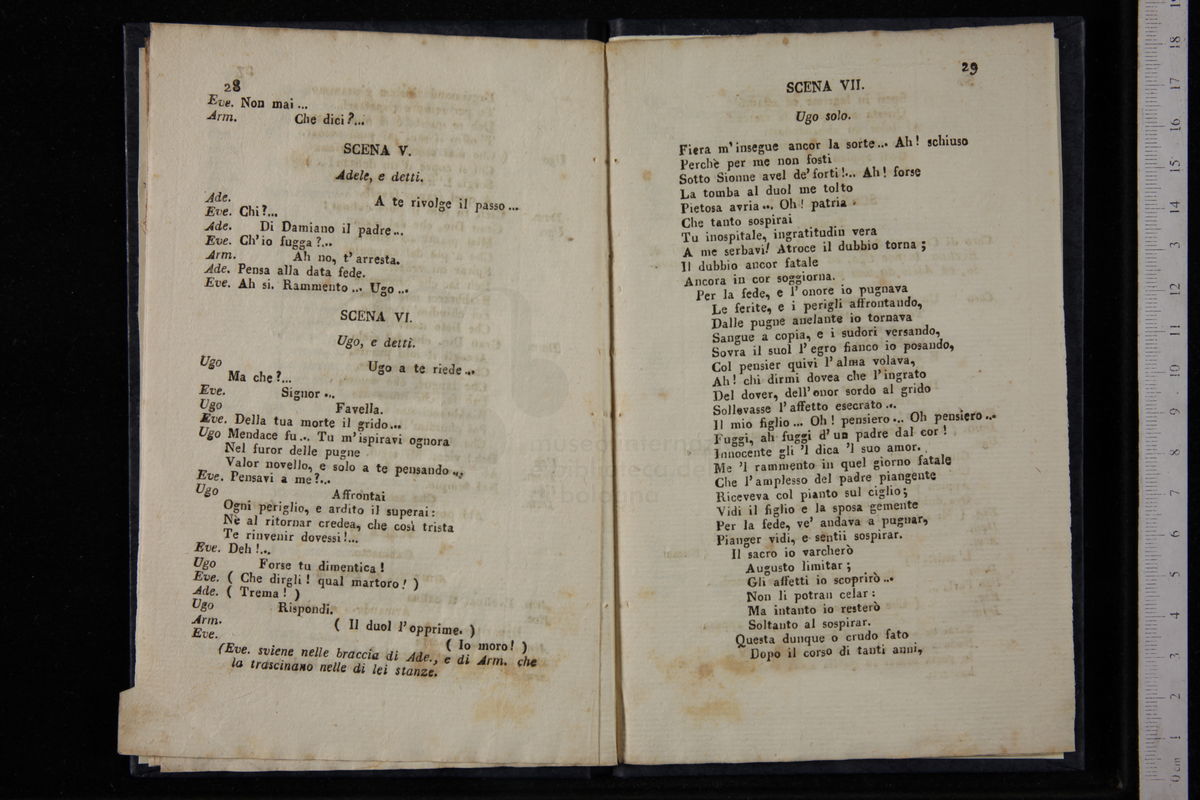 28
Eve. Non mai ...
Arm. Che dici?...
SCENA V.
Adele, e detti.
Ade. A te rivolge il passo ...
Eve. Chi?...
Ade. Di Damiano il padre...
Eve. Ch'io fugga?...
Arm. Ah no, t'arresta.
Ade. Pensa alla data fede.
Eve. Ah si. Rammento ... Ugo ...
SCENA VI.
Ugo, e detti.
Ugo Ugo a te riede ...
Ma che?...
Eve. Signor ...
Ugo Favella.
Eve. Della tua morte il grido...
Ugo Mendace fu... Tu m'ispiravi ognora
Nel furor delle pugne
Valor novello, e solo a te pensando ...
Eve. Pensavi a me?...
Ugo Affrontai
Ogni periglio, e ardito il superai:
Nè al ritornar credea, che così trista
Te rinvenir dovessi!...
Eve. Deh!...
Ugo Forse tu dimentica!
Eve. ( Che dirgli! qual martoro! )
Ade. ( Trema! )
Ugo Rispondi.
Arm. ( Il duol l'opprime. )
Eve. ( Io moro! )
(Eve. sviene nelle braccia di Ade., e di Arm. che
la trascinano nelle di lei stanze.
29
SCENA VII.
Ugo solo.
Fiera m'insegue ancor la sorte... Ah! schiuso
Perchè per me non fosti
Sotto Sionne avel de' forti!... Ah! forse
La tomba al duol me tolto
Pietosa avria ... Oh! patria
Che tanto sospirai
Tu inospitale, ingratitudin vera
A me serbavi! Atroce il dubbio torna;
Il dubbio ancor fatale
Ancora in cor soggiorna.
Per la fede, e l'onore io pugnava
Le ferite, e i perigli affrontando,
Dalle pugne anelante io tornava
Sangue a copia, e i sudori versando,
Sovra il suol l'egro fianco io posando,
Col pensier quivi l'alma volava,
Ah! chi dirmi dovea che l'ingrato
Del dover, dell'onor sordo al grido
Sollevasse l'affetto esecrato ...
Il mio figlio ... Oh! pensiero ... Oh pensiero...
Fuggi, ah fuggi d'un padre dal cor!
Innocente gli 'l dica 'l suo amor.
Me 'l rammento in quel giorno fatale
Che l'amplesso del padre piangente
Riceveva col pianto sul ciglio;
Vidi il figlio e la sposa gemente
Per la fede, ve' andava a pugnar,
Pianger vidi, e sentii sospirar.
Il sacro io varcherò
Augusto limitar;
Gli affetti io scoprirò ...
Non li potran celar:
Ma intanto io resterò
Soltanto al sospirar.
Questa dunque o crudo fato
Dopo il corso di tanti anni,